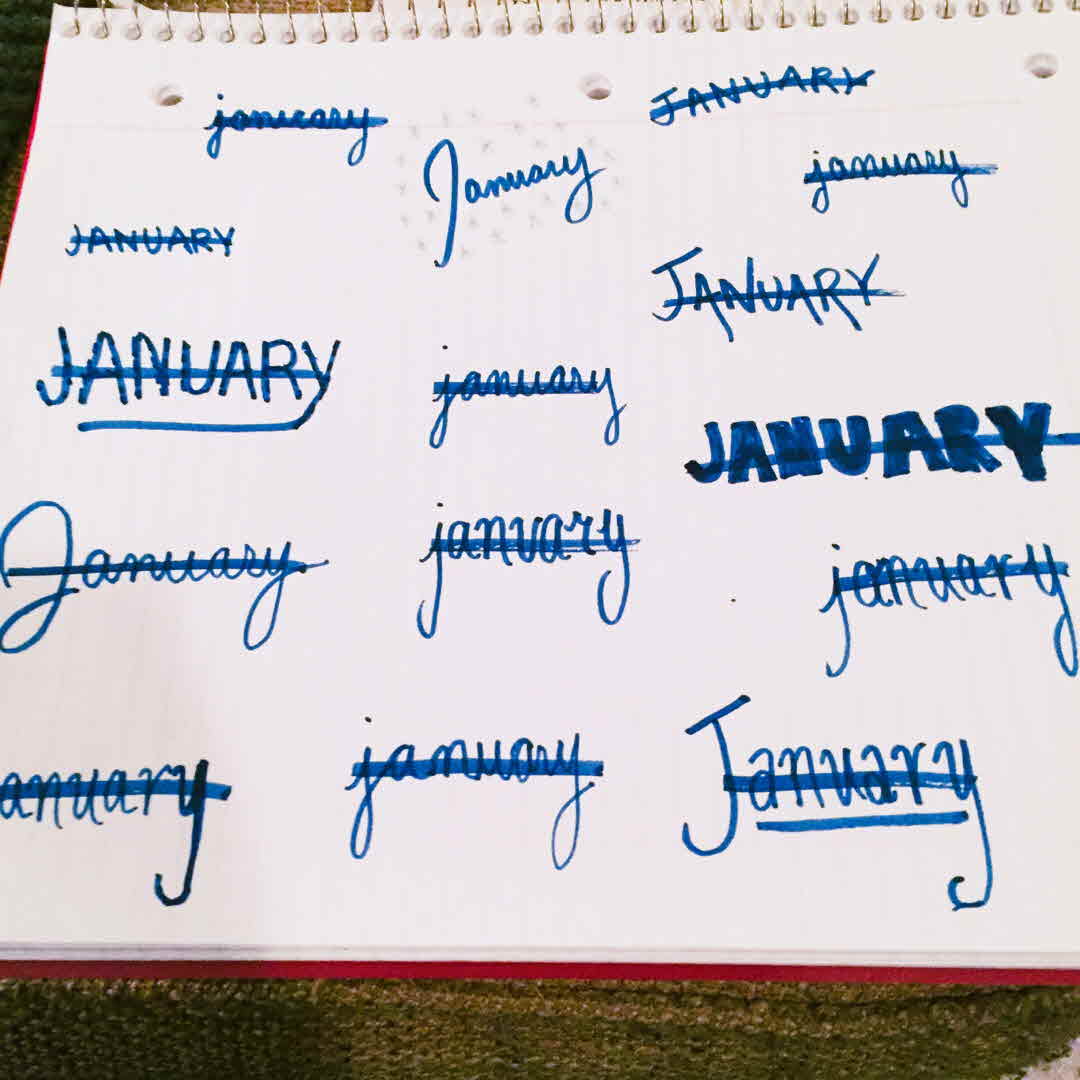 january
JANUARY
January
january
JANUARY
JANUARY
JANUARY
january
JANUARY
January
january
january
anuary
january
January